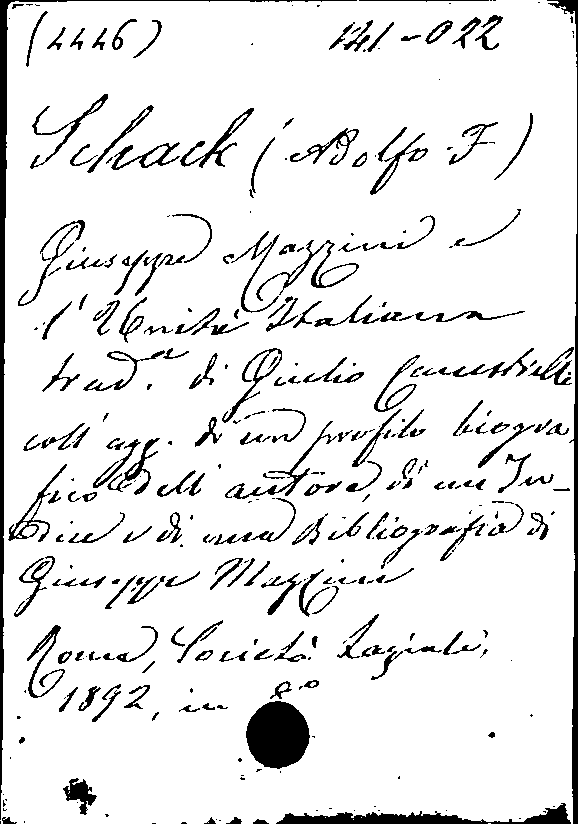 (4446) 141-022
Schack (Adolfo F)
Giuseppe Mazzini e
l'Unità Italiana
trad.e di Giulio Canestrelli
coll' agg. di un profilo biogra,
fico dell' autore, di un In-
dice e di una Bibliografia di
Giuseppe Mazzini
Roma, Società Laziale,
1892, in 8º